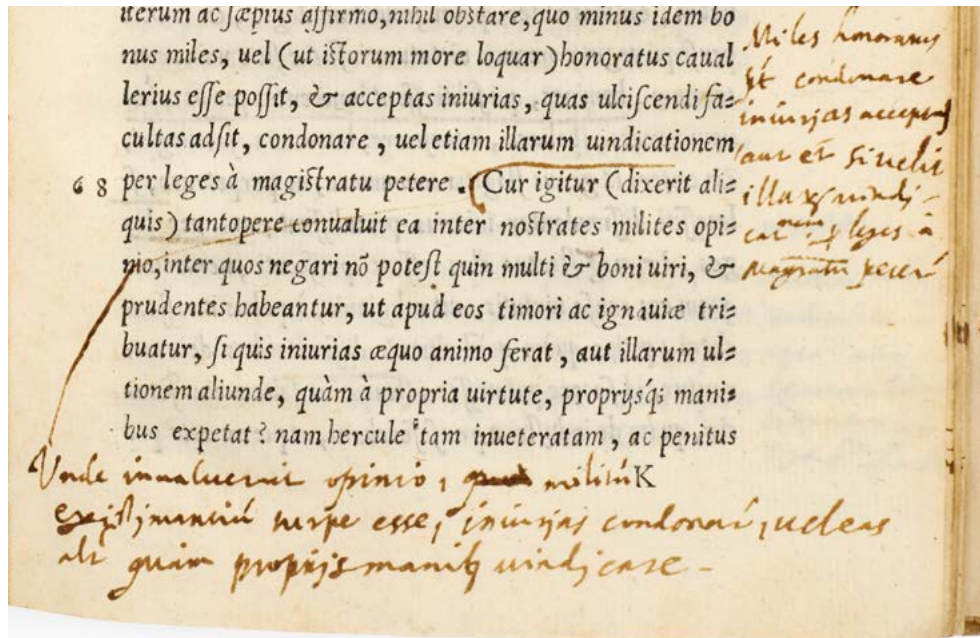 iterum ac sæpius affirmo, nihil obstare, quo minus idem bo
nus miles, uel (ut istorum more loquar) honoratus caual
lerius esse possit, & acceptas iniurias, quas ulciscendi fa=
cultas adsit, condonare, uel etiam illarum uindicationem
68 per leges à magistratu petere. (Cur igitur (dixerit ali=
quis) tantopere conualuit ea inter nostrates milites opi=
nio, inter quos negari nõ potest quin multi & boni uiri, &
prudentes habeantur, ut apud eos timori ac ignauiæ tri=
buatur, si quis iniurias æquo animo ferat, aut illarum ul=
tionem aliunde, quàm à propria uirtute, proprijsq́; mani=
bus expetat? nam hercule tam inueteratam, ac penitus
K
Miles honoratus
condonare
iniurias
aut et si uelit
illar
leges à
Vnde inualuerit opinio, militũ
existimantiũ turpe esse, iniurias condonar, uel eas
quam proprijs manib uindicare